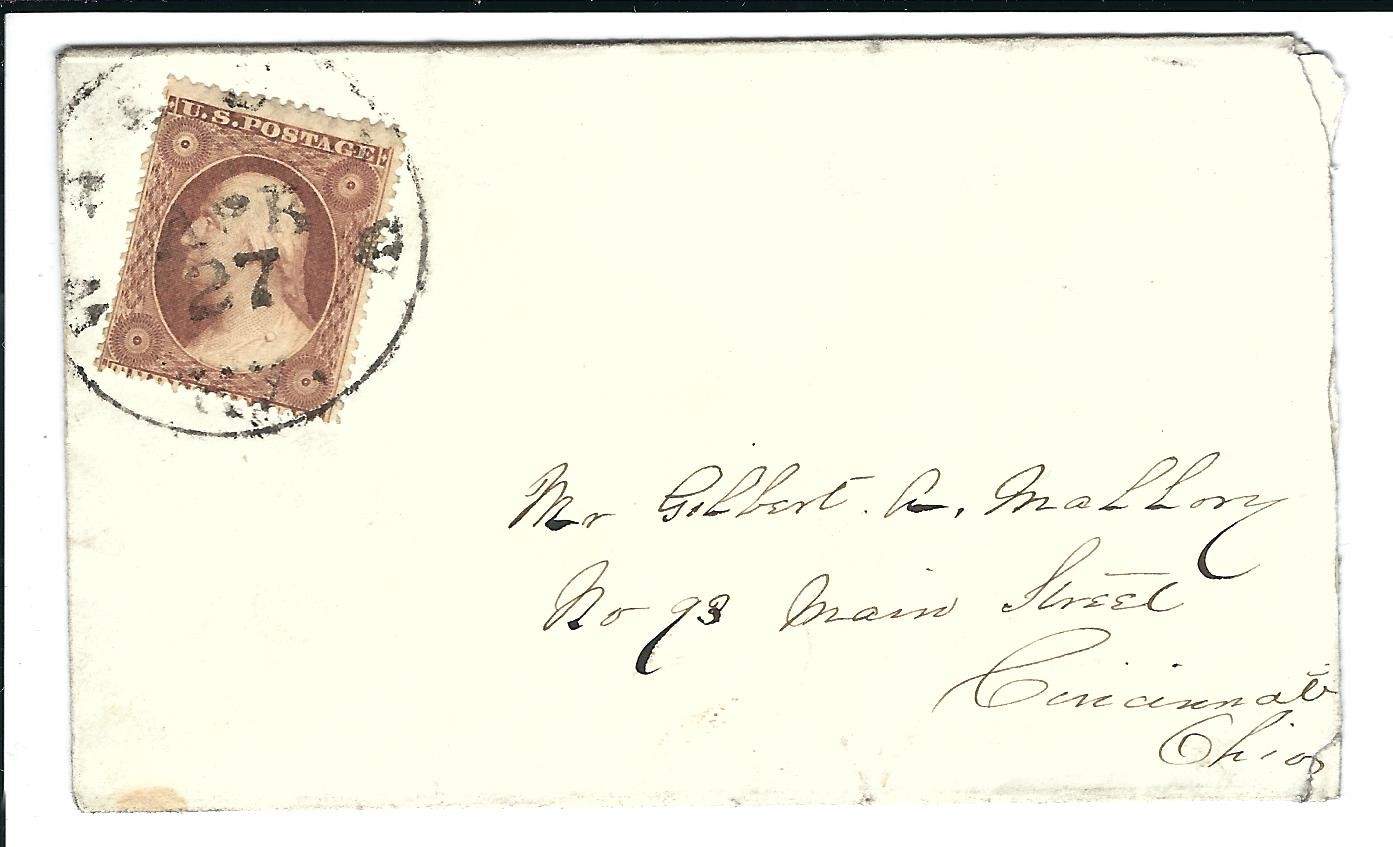 U.S. POSTAGE
27
Mr Gilbert. A. Mallory
No 93 Main Street
Cincinnati
Ohio